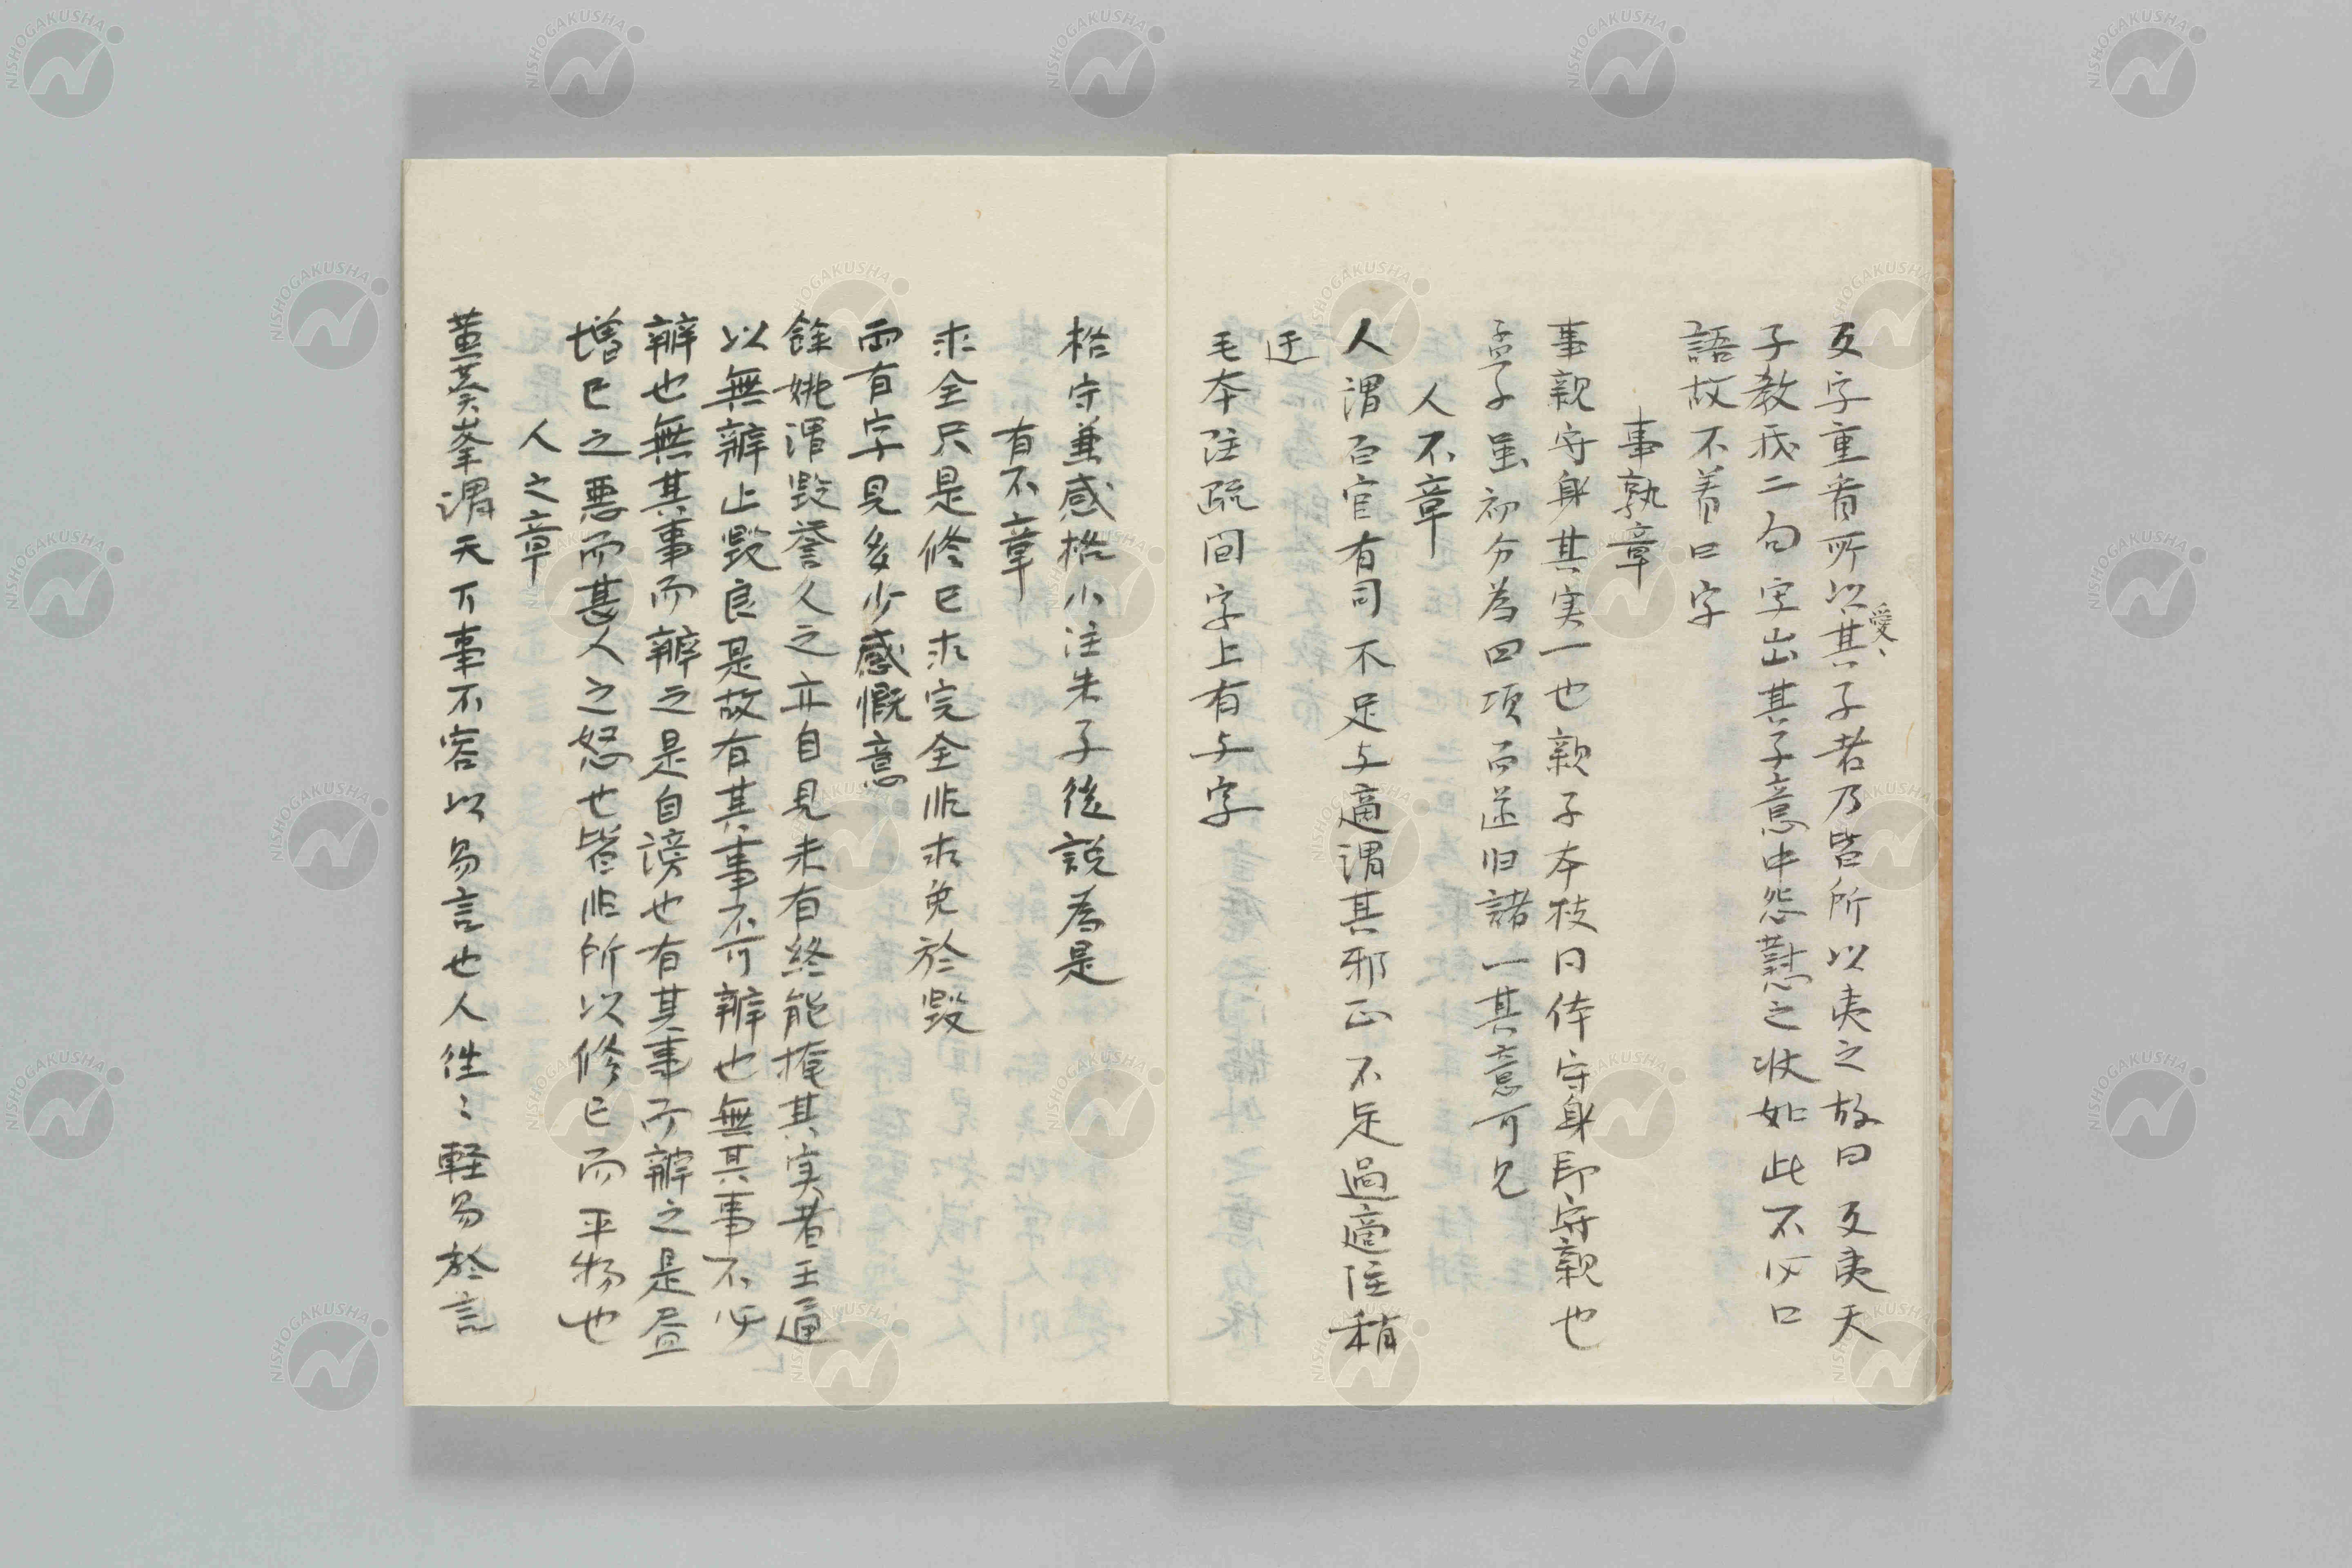 反字重看所以其愛子者乃皆所以夷之故曰反夷天
子教我二句字出其子意中怨懟之状如此不必口
語故不着曰字
事孰章
事親守身其実一也親子本枝同体守身即守親也
孟子虽初分為四項而遂旧諸一其意可見
人不章
人謂百官有司不足与適謂其邪正不足過適註稍
迂
毛本註疏間字上有与字
格字兼感格小注朱子後説為是
有不章
求全只是修已求完全非求免於毀
両有字見多少感慨意
餘姚謂毀誉人之亦自見未有終能掩其実者王通
以無辨止毀良是故有其事不可辨也無其事不必
辨也無其事而辨之是自謗也有其事而辨之是
増已之悪而甚人之怒也皆非所以修已而平物也
人之章
董葵峯謂天下事不容以易言也人往〻軽易於言
NISHOGAKUSHA